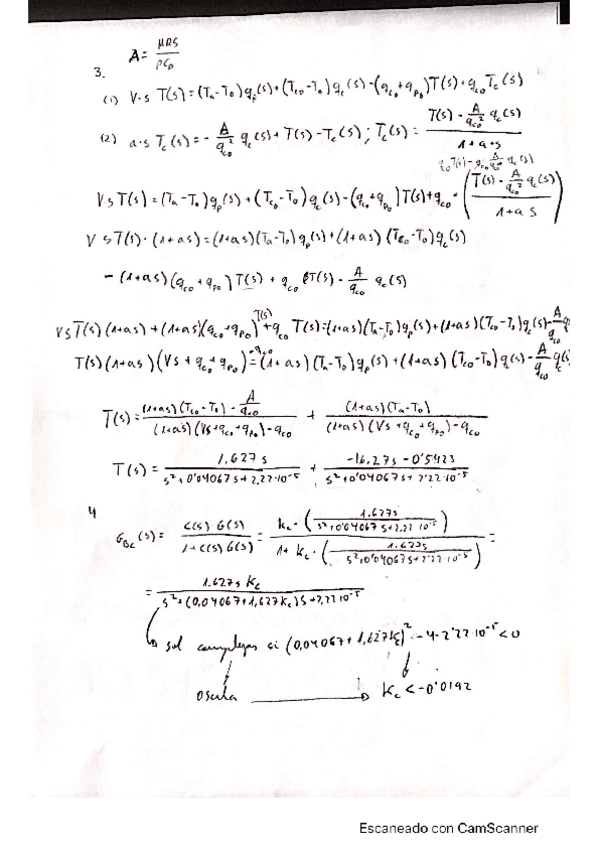 A = μRS / ρCp
3.
(1) V·s T(s) = (Ta-To) qp(s) + (Tco-To) qc(s) - (qco+qpo) T(s) + qco Tc(s)
(2) a·s Tc(s) = - A/qco² qc(s) + T(s) - Tc(s) ; Tc(s) = (T(s) - A/qco² qc(s)) / (1+a·s)
V s T(s) = (Ta-To) qp(s) + (Tco-To) qc(s) - (qco+qpo) T(s) + qco · ((T(s) - A/qco² qc(s)) / (1+a s))
V s T(s) · (1+as) = (1+as)(Ta-To) qp(s) + (1+as)(Tco-To) qc(s)
- (1+as)(qco+qpo) T(s) + qco T(s) - A/qco qc(s)
V s T(s) (1+as) + (1+as)(qco+qpo) T(s) + qco T(s) = (1+as)(Ta-To) qp(s) + (1+as)(Tco-To) qc(s) - A/qco q
T(s) (1+as) (Vs + qco + qpo) - qco = (1+as) (Ta-To) qp(s) + (1+as) (Tco-To) qc(s) - A/qco qc(s
T(s) = ((1+as)(Tco-To) - A/qco) / ((1+as)(Vs+qco+qpo) - qco) + ((1+as)(Ta-To)) / ((1+as)(Vs+qco+qpo) - qco)
T(s) = 1.627 s / (s² + 0'04067 s + 2,22·10⁻⁵) + (-16.27s - 0'5423) / (s² + 0'04067 s + 2'22·10⁻⁵)
4
GBc(s) = C(s) G(s) / (1 + C(s) G(s)) = kc · (1.627s / (s² + 0'04067 s + 2,22·10⁻⁵)) / (1 + kc · (1.627s / (s² + 0'04067 s + 2'22·10⁻⁵))) =
= 1.627s kc / (s² + (0,04067 + 1,627kc) s + 2,22·10⁻⁵)
sol complejas si (0,04067 + 1,627kc)² - 4·2'22·10⁻⁵ < 0
oscila → kc < -0'0192
Escaneado con CamScanner